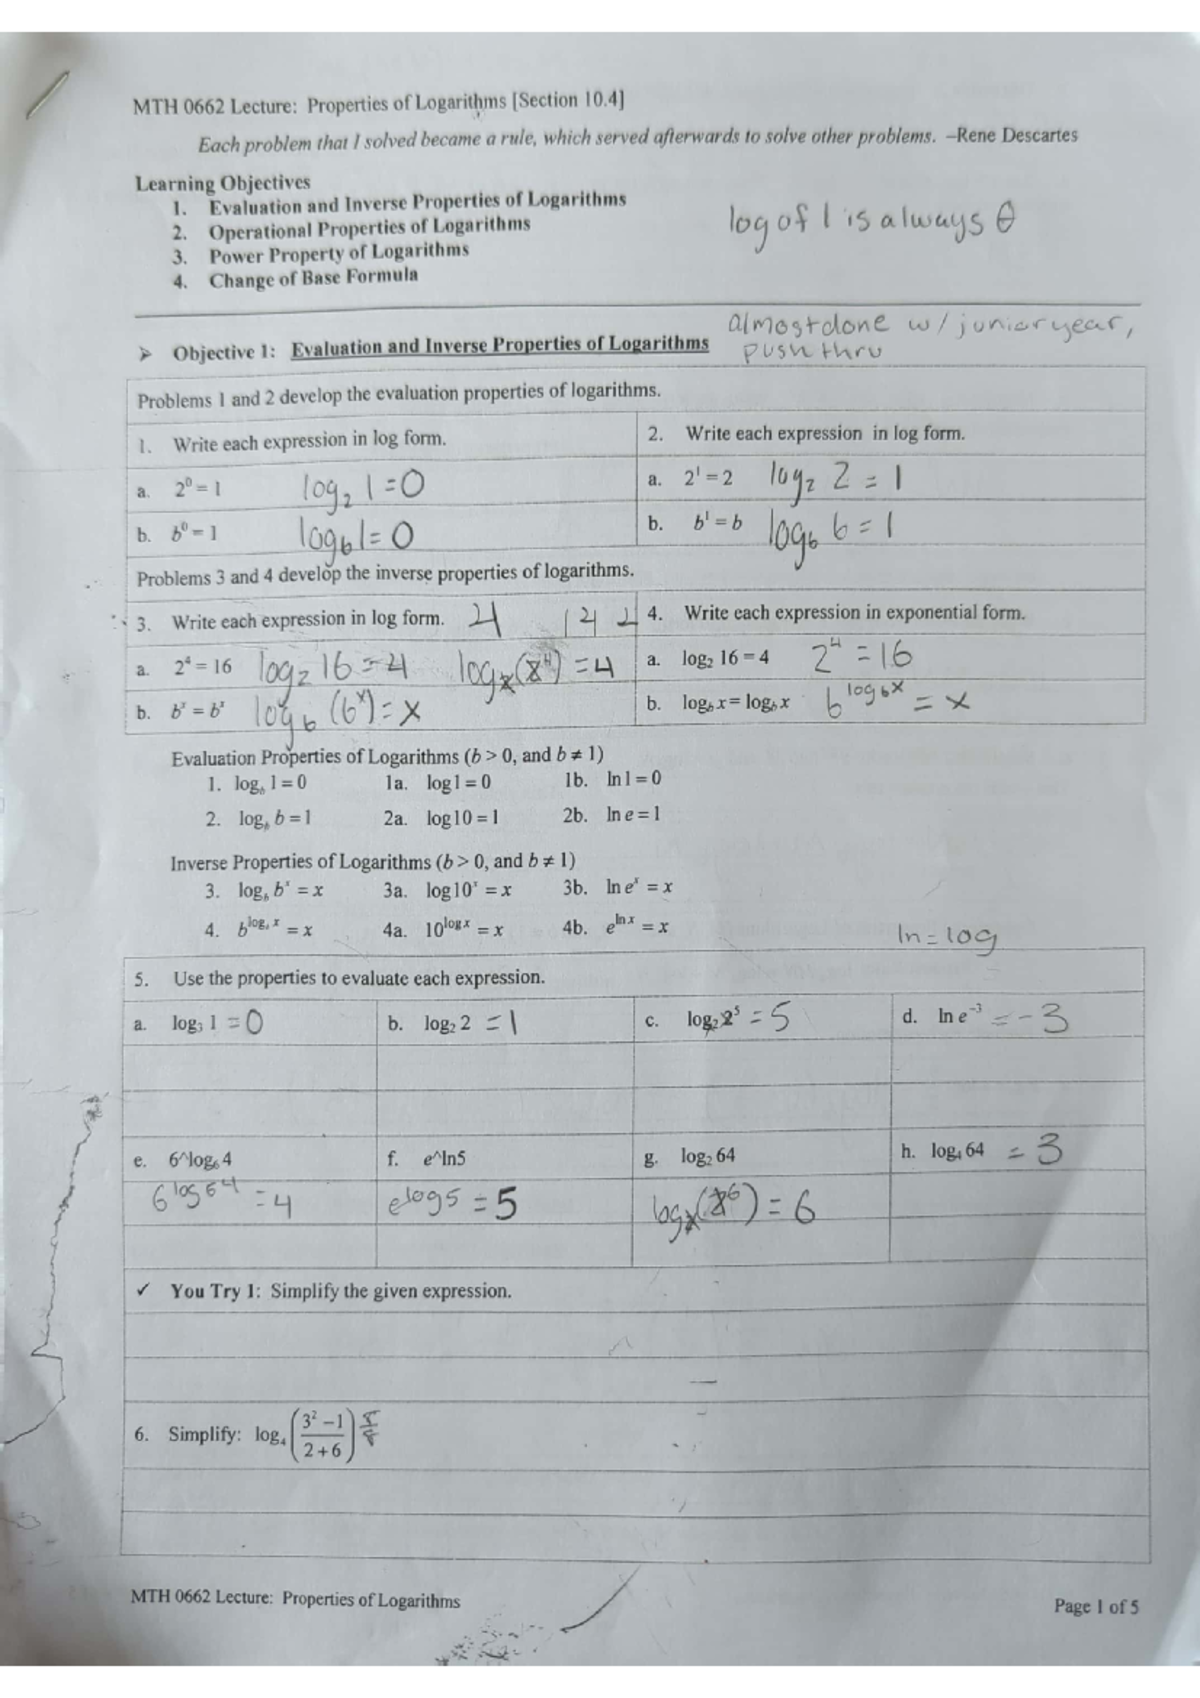 MTH 0662 Lecture: Properties of Logarithms [Section 10.4]
Each problem that I solved became a rule, which served afterwards to solve other problems. –Rene Descartes
Learning Objectives
1. Evaluation and Inverse Properties of Logarithms
2. Operational Properties of Logarithms
3. Power Property of Logarithms
4. Change of Base Formula
log of 1 is always 0
almost done w/ junior year,
push thru
➤ Objective 1: Evaluation and Inverse Properties of Logarithms
Problems 1 and 2 develop the evaluation properties of logarithms.
1. Write each expression in log form.
2. Write each expression in log form.
a. 2⁰ = 1 log₂ 1 = 0
a. 2¹ = 2 log₂ 2 = 1
b. b⁰ = 1 log_b 1 = 0
b. b¹ = b log_b b = 1
Problems 3 and 4 develop the inverse properties of logarithms.
3. Write each expression in log form. 4
4. Write each expression in exponential form.
a. 2⁴ = 16 log₂ 16 = 4 log₂(2⁴) = 4
a. log₂ 16 = 4 2⁴ = 16
b. bˣ = bˣ log_b (bˣ) = x
b. log_b x = log_b x b^(log_b x) = x
Evaluation Properties of Logarithms (b > 0, and b ≠ 1)
1. log_b 1 = 0 1a. log 1 = 0 1b. ln 1 = 0
2. log_b b = 1 2a. log 10 = 1 2b. ln e = 1
Inverse Properties of Logarithms (b > 0, and b ≠ 1)
3. log_b bˣ = x 3a. log 10ˣ = x 3b. ln eˣ = x
4. b^(log_b x) = x 4a. 10^(log x) = x 4b. e^(ln x) = x
ln = log
5. Use the properties to evaluate each expression.
a. log₃ 1 = 0 b. log₂ 2 = 1 c. log₂ 2⁵ = 5 d. ln e⁻³ = -3
e. 6^log₆ 4 f. e^ln5 g. log₂ 64 h. log₄ 64 = 3
6^(log₆ 4) = 4 e^(log 5) = 5 log₂(2⁶) = 6
✓ You Try 1: Simplify the given expression.
6. Simplify: log₄ ((3² − 1)/(2 + 6)) 8/8
MTH 0662 Lecture: Properties of Logarithms
Page 1 of 5